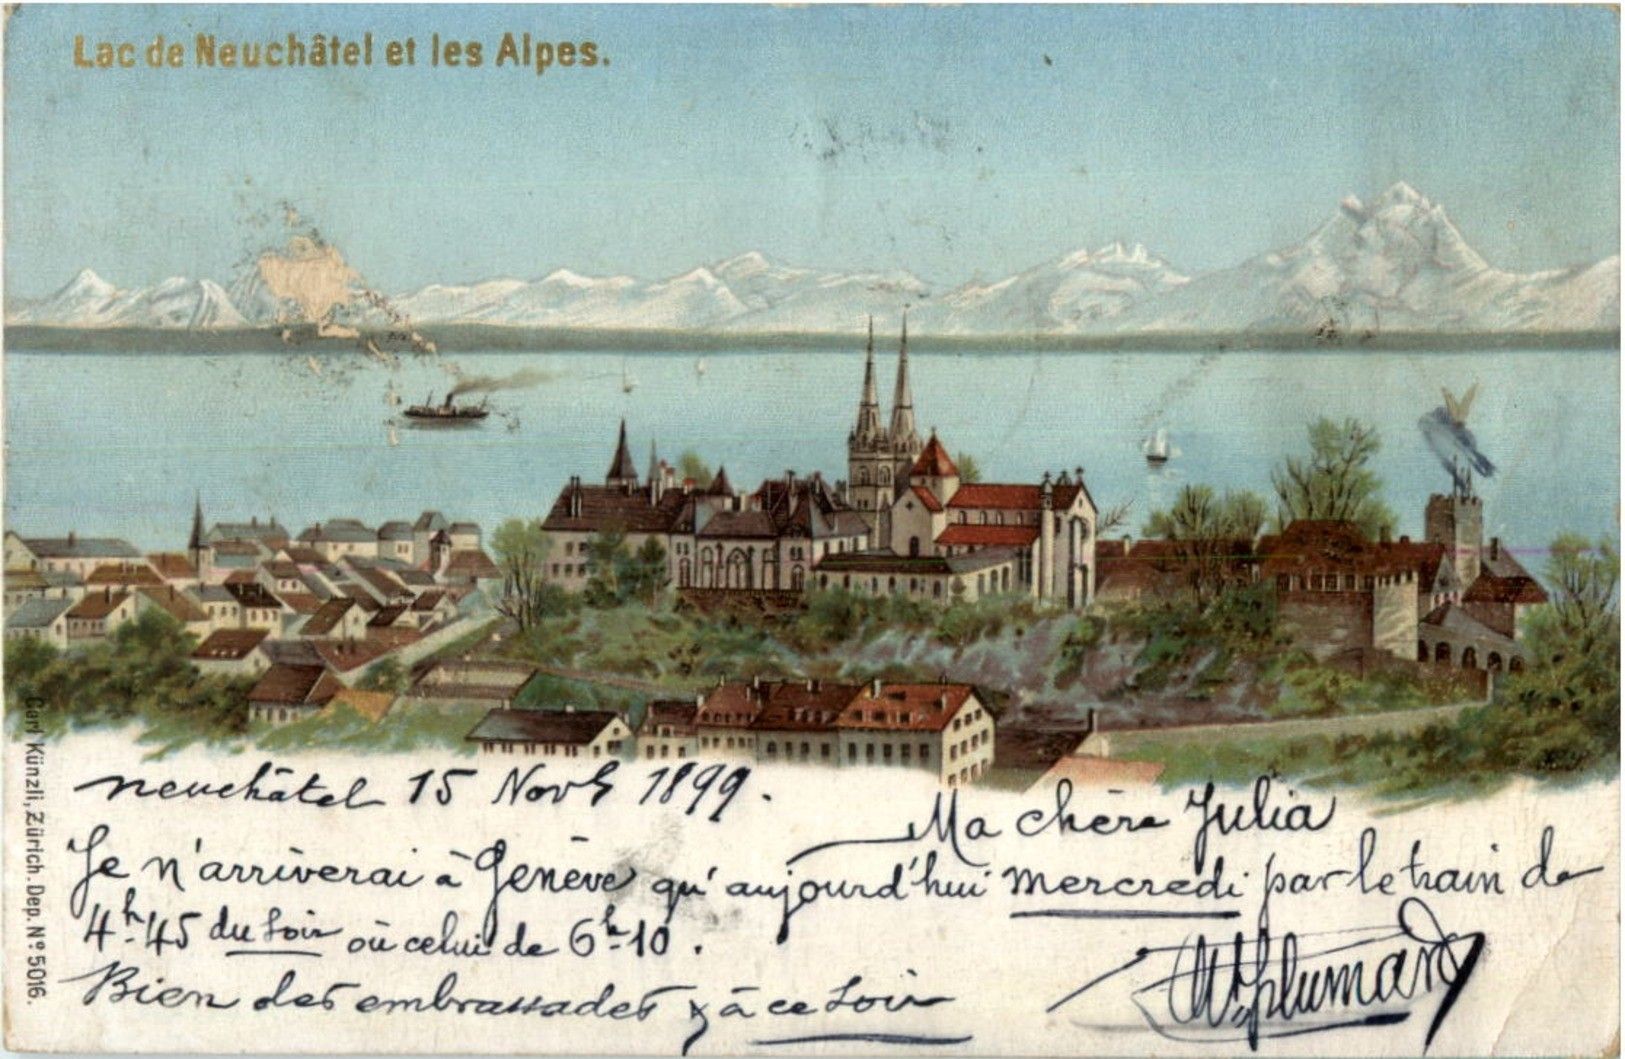 Lac de Neuchâtel et les Alpes.
Carl Künzli, Zürich. Dep. Nº 5016.
Neuchâtel 15 Novb 1899.
Ma chère Julia
Je n'arriverai à Genève qu'aujourd'hui mercredi par le train de
4h 45 du soir où celui de 6h 10.
Bien des embrassades & à ce soir